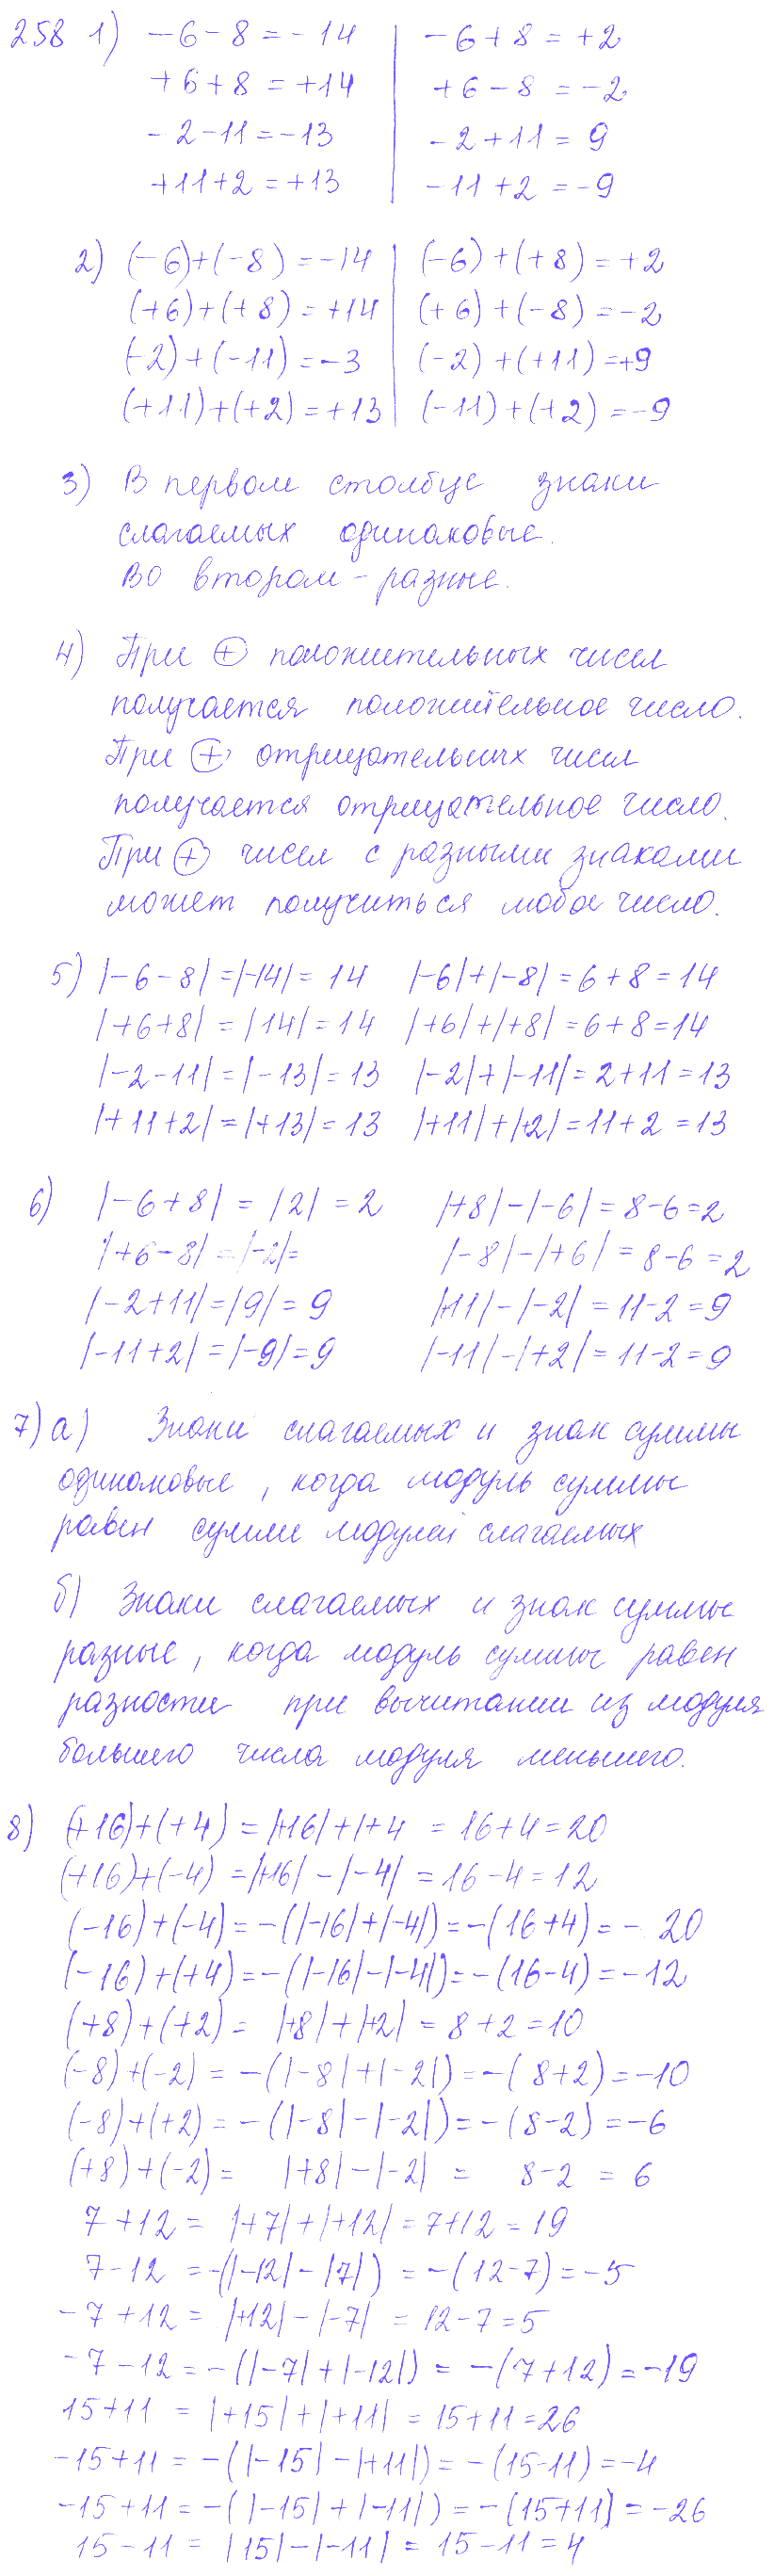 258 1) -6-8=-14 | -6+8=+2
+6+8=+14 | +6-8=-2
-2-11=-13 | -2+11=9
+11+2=+13 | -11+2=-9
2) (-6)+(-8)=-14 | (-6)+(+8)=+2
(+6)+(+8)=+14 | (+6)+(-8)=-2
(-2)+(-11)=-3 | (-2)+(+11)=+9
(+11)+(+2)=+13 | (-11)+(+2)=-9
3) В первом столбце знаки
слагаемых одинаковые.
Во втором - разные.
4) При ⊕ положительных чисел
получается положительное число.
При ⊕ отрицательных чисел
получается отрицательное число.
При ⊕ чисел с разными знаками
может получиться любое число.
5) |-6-8|=|-14|=14 |-6|+|-8|=6+8=14
|+6+8|=|14|=14 |+6|+|+8|=6+8=14
|-2-11|=|-13|=13 |-2|+|-11|=2+11=13
|+11+2|=|+13|=13 |+11|+|+2|=11+2=13
6) |-6+8|=|2|=2 |+8|-|-6|=8-6=2
|+6-8|=|-2|= |-8|-|+6|=8-6=2
|-2+11|=|9|=9 |+11|-|-2|=11-2=9
|-11+2|=|-9|=9 |-11|-|+2|=11-2=9
7) а) Знаки слагаемых и знак суммы
одинаковые, когда модуль суммы
равен сумме модулей слагаемых
б) Знаки слагаемых и знак суммы
разные, когда модуль суммы равен
разности при вычитании из модуля
большего числа модуля меньшего.
8) (+16)+(+4)=|+16|+|+4=16+4=20
(+16)+(-4)=|+16|-|-4|=16-4=12
(-16)+(-4)=-(|-16|+|-4|)=-(16+4)=-20
(-16)+(+4)=-(|-16|-|-4|)=-(16-4)=-12
(+8)+(+2)=|+8|+|+2|=8+2=10
(-8)+(-2)=-(|-8|+|-2|)=-(8+2)=-10
(-8)+(+2)=-(|-8|-|-2|)=-(8-2)=-6
(+8)+(-2)=|+8|-|-2|=8-2=6
7+12=|+7|+|+12|=7+12=19
7-12=-(|-12|-|7|)=-(12-7)=-5
-7+12=|+12|-|-7|=12-7=5
-7-12=-(|-7|+|-12|)=-(7+12)=-19
15+11=|+15|+|+11|=15+11=26
-15+11=-(|-15|-|+11|)=-(15-11)=-4
-15+11=-(|-15|+|-11|)=-(15+11)=-26
15-11=|15|-|-11|=15-11=4